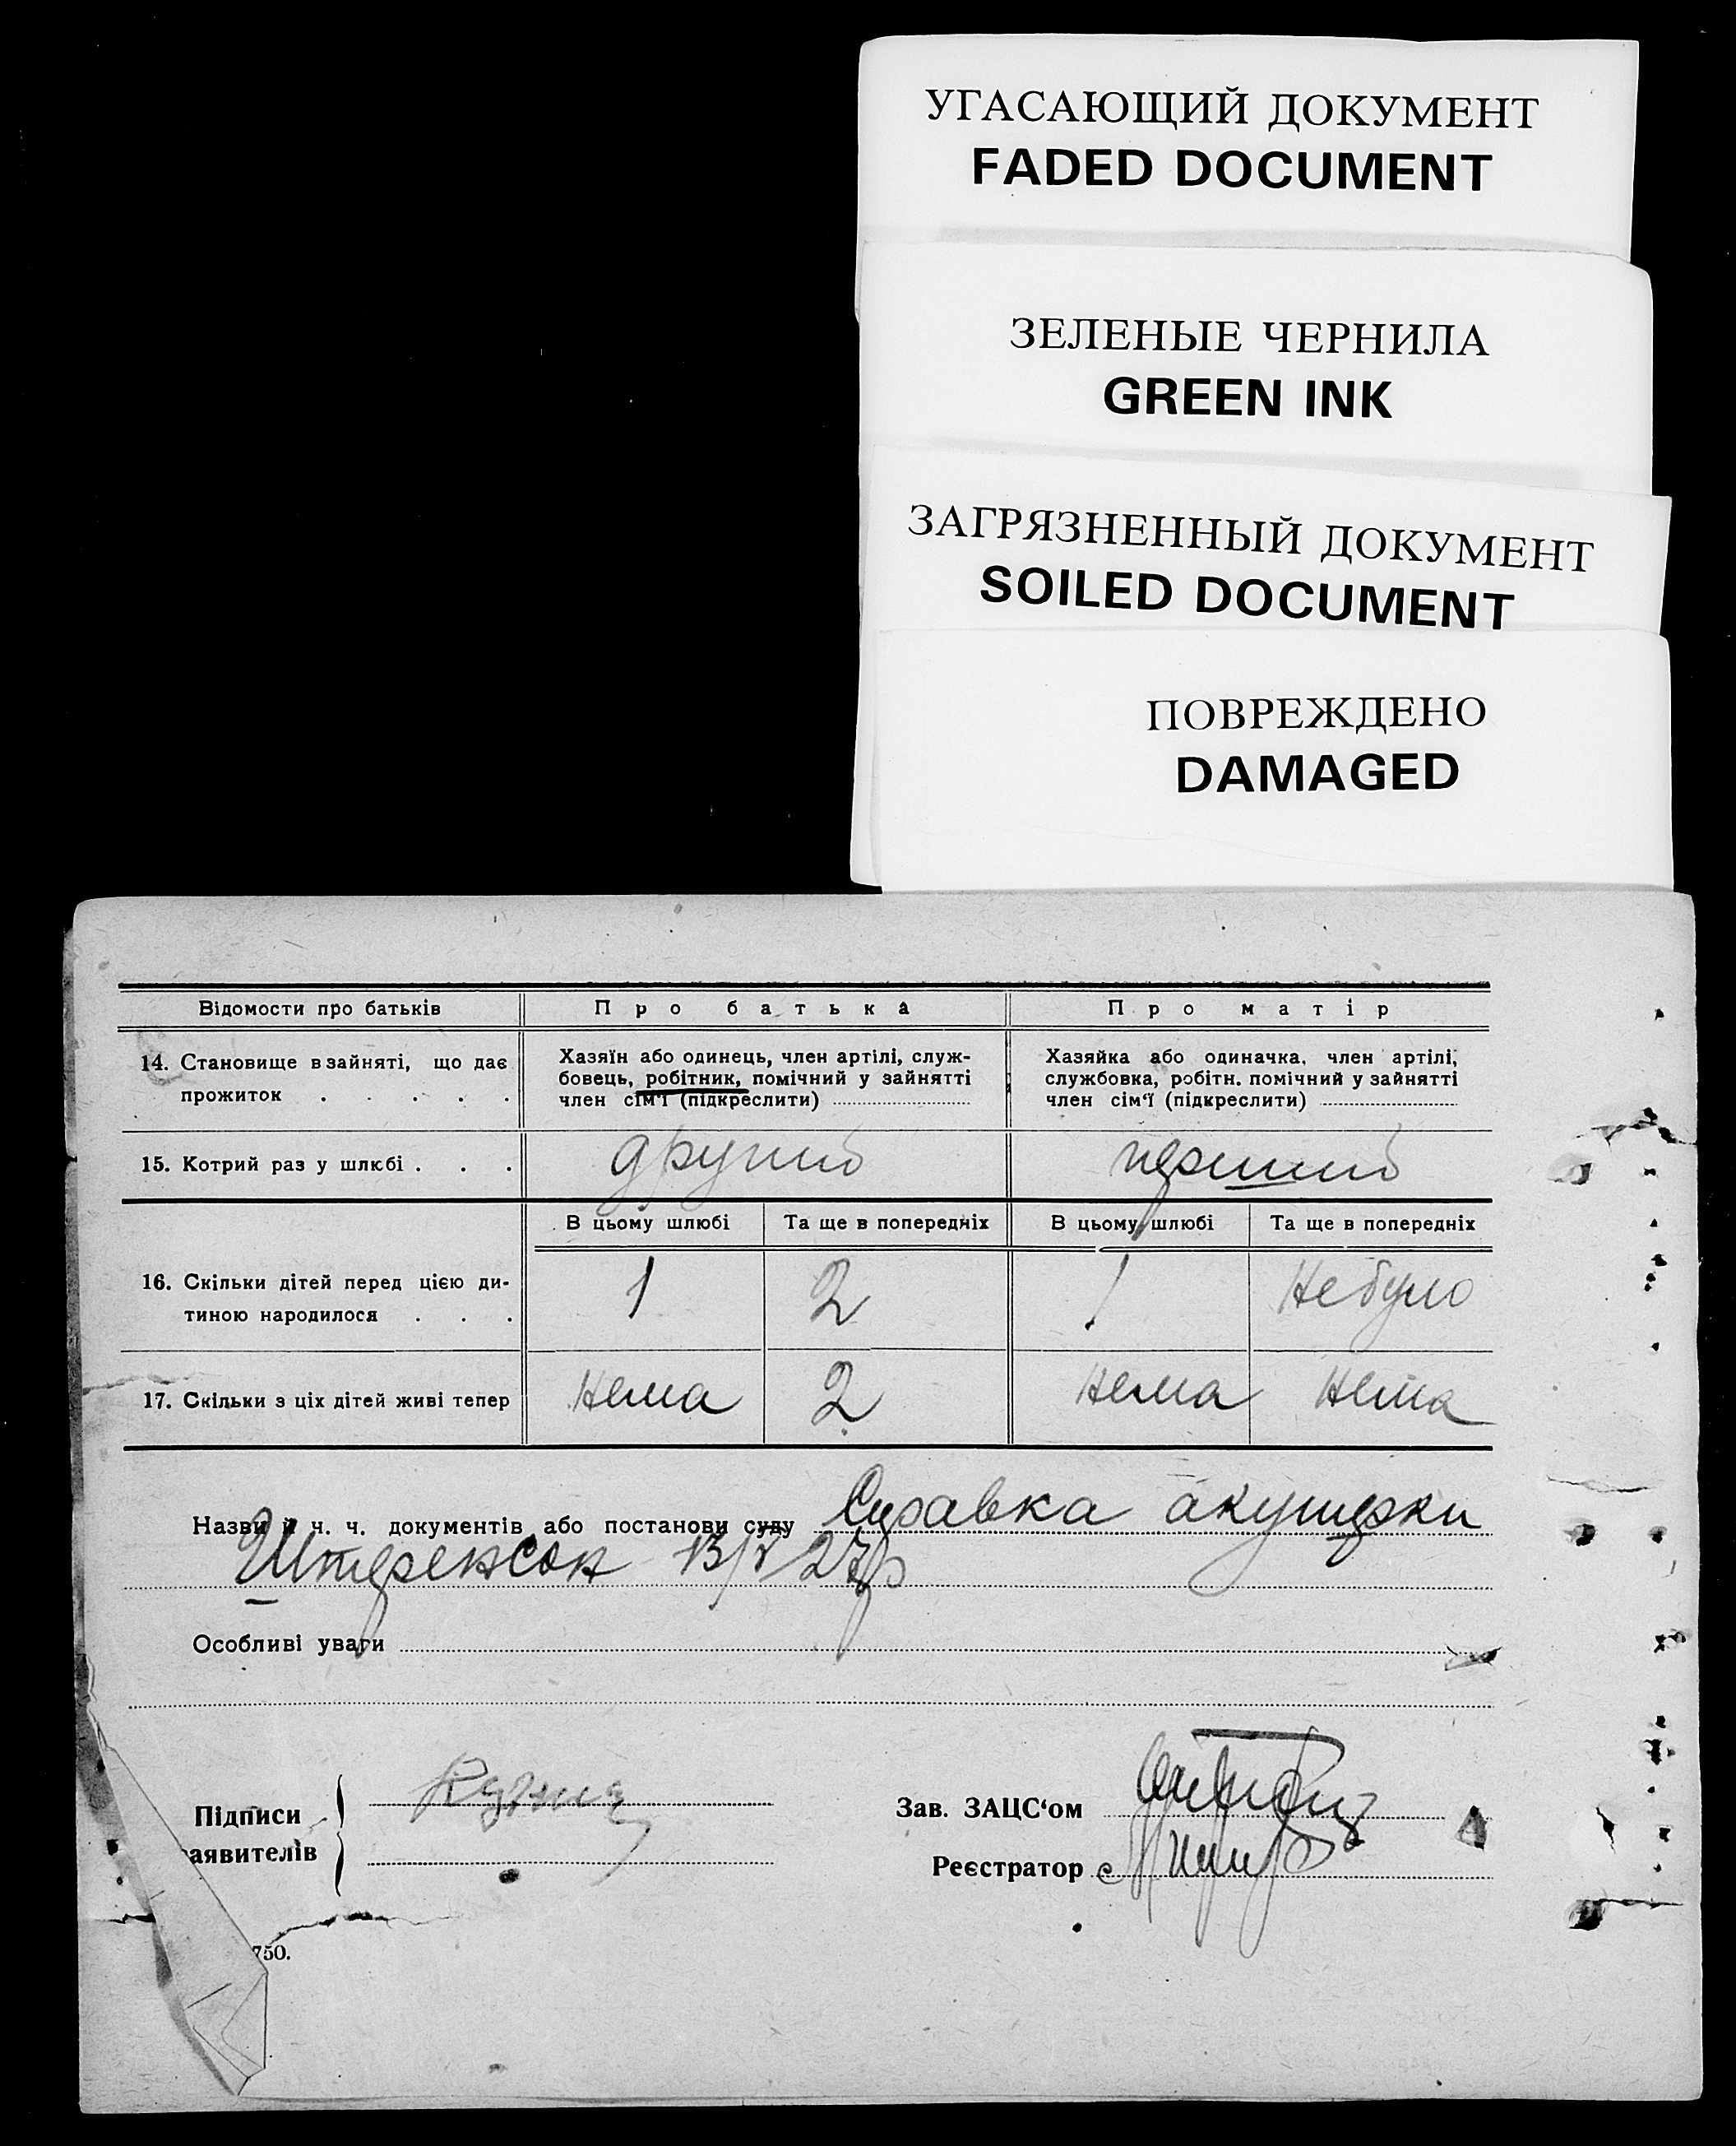 УГАСАЮЩИЙ ДОКУМЕНТ
FADED DOCUMENT
ЗЕЛЕНЫЕ ЧЕРНИЛА
GREEN INK
ЗАГРЯЗНЕННЫЙ ДОКУМЕНТ
SOILED DOCUMENT
ПОВРЕЖДЕНО
DAMAGED
Відомости про батьків Про батька Про матір
14. Становище в зайняті, що дає прожиток . . . . .
Хазяїн або одинець, член артілі, служ-
бовець, робітник, помічний у зайнятті
член сім'ї (підкреслити)
Хазяйка або одиначка, член артілі,
службовка, робітн. помічний у зайнятті
член сім'ї (підкреслити)
15. Котрий раз у шлюбі . . . другий перший
В цьому шлюбі Та ще в попередніх В цьому шлюбі Та ще в попередніх
16. Скільки дітей перед цією ди-
тиною народилося . . . 1 2 1 Не було
17. Скільки з ціх дітей живі тепер Нема 2 Нема Нема
Назви й ч. ч. документів або постанови суду Справка акушерки
Штеренсон 13/V 27р
Особливі уваги
Підписи
аявителів
Зав. ЗАЦС'ом
Реєстратор
750.